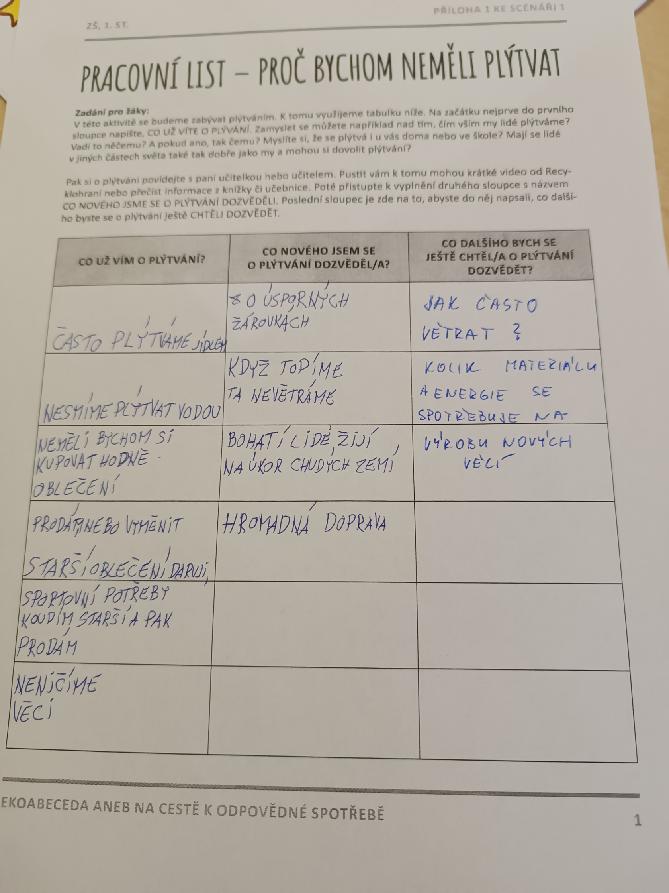 ZŠ, 1. ST.
PŘÍLOHA 1 KE SCÉNÁŘI 1
PRACOVNÍ LIST – PROČ BYCHOM NEMĚLI PLÝTVAT
Zadání pro žáky:
V této aktivitě se budeme zabývat plýtváním. K tomu využijeme tabulku níže. Na začátku nejprve do prvního
sloupce napište, CO UŽ VÍTE O PLÝVÁNÍ. Zamyslet se můžete například nad tím, čím vším my lidé plýtváme?
Vadí to něčemu? A pokud ano, tak čemu? Myslíte si, že se plýtvá i u vás doma nebo ve škole? Mají se lidé
v jiných částech světa také tak dobře jako my a mohou si dovolit plýtvání?
Pak si o plýtvání povídejte s paní učitelkou nebo učitelem. Pustit vám k tomu mohou krátké video od Recy-
klohraní nebo přečíst informace z knížky či učebnice. Poté přistupte k vyplnění druhého sloupce s názvem
CO NOVÉHO JSME SE O PLÝTVÁNÍ DOZVĚDĚLI. Poslední sloupec je zde na to, abyste do něj napsali, co další-
ho byste se o plýtvání ještě CHTĚLI DOZVĚDĚT.
CO UŽ VÍM O PLÝTVÁNÍ?
CO NOVÉHO JSEM SE
O PLÝTVÁNÍ DOZVĚDĚL/A?
CO DALŠÍHO BYCH SE
JEŠTĚ CHTĚL/A O PLÝTVÁNÍ
DOZVĚDĚT?
ČASTO PLÝTVÁME JÍDLEM
O ÚSPORNÝCH
ŽÁROVKÁCH
JAK ČASTO
VĚTRAT ?
NESMÍME PLÝTVAT VODOU
KDYŽ TOPÍME
TA NEVĚTRÁME
KOLIK MATERIÁLU
A ENERGIE SE
SPOTŘEBUJE NA
NEMĚLI BYCHOM SI
KUPOVAT HODNĚ
OBLEČENÍ
BOHATÍ LIDÉ ŽIJÍ
NA ÚKOR CHUDÝCH ZEMÍ
VÝROBU NOVÝCH
VĚCÍ
PRODÁM NEBO VYMĚNIT
STARŠÍ OBLEČENÍ DARUJI
HROMADNÁ DOPRAVA
SPORTOVNÍ POTŘEBY
KOUPÍM STARŠÍ A PAK
PRODÁM
NENIČÍME
VĚCI
EKOABECEDA ANEB NA CESTĚ K ODPOVĚDNÉ SPOTŘEBĚ
1